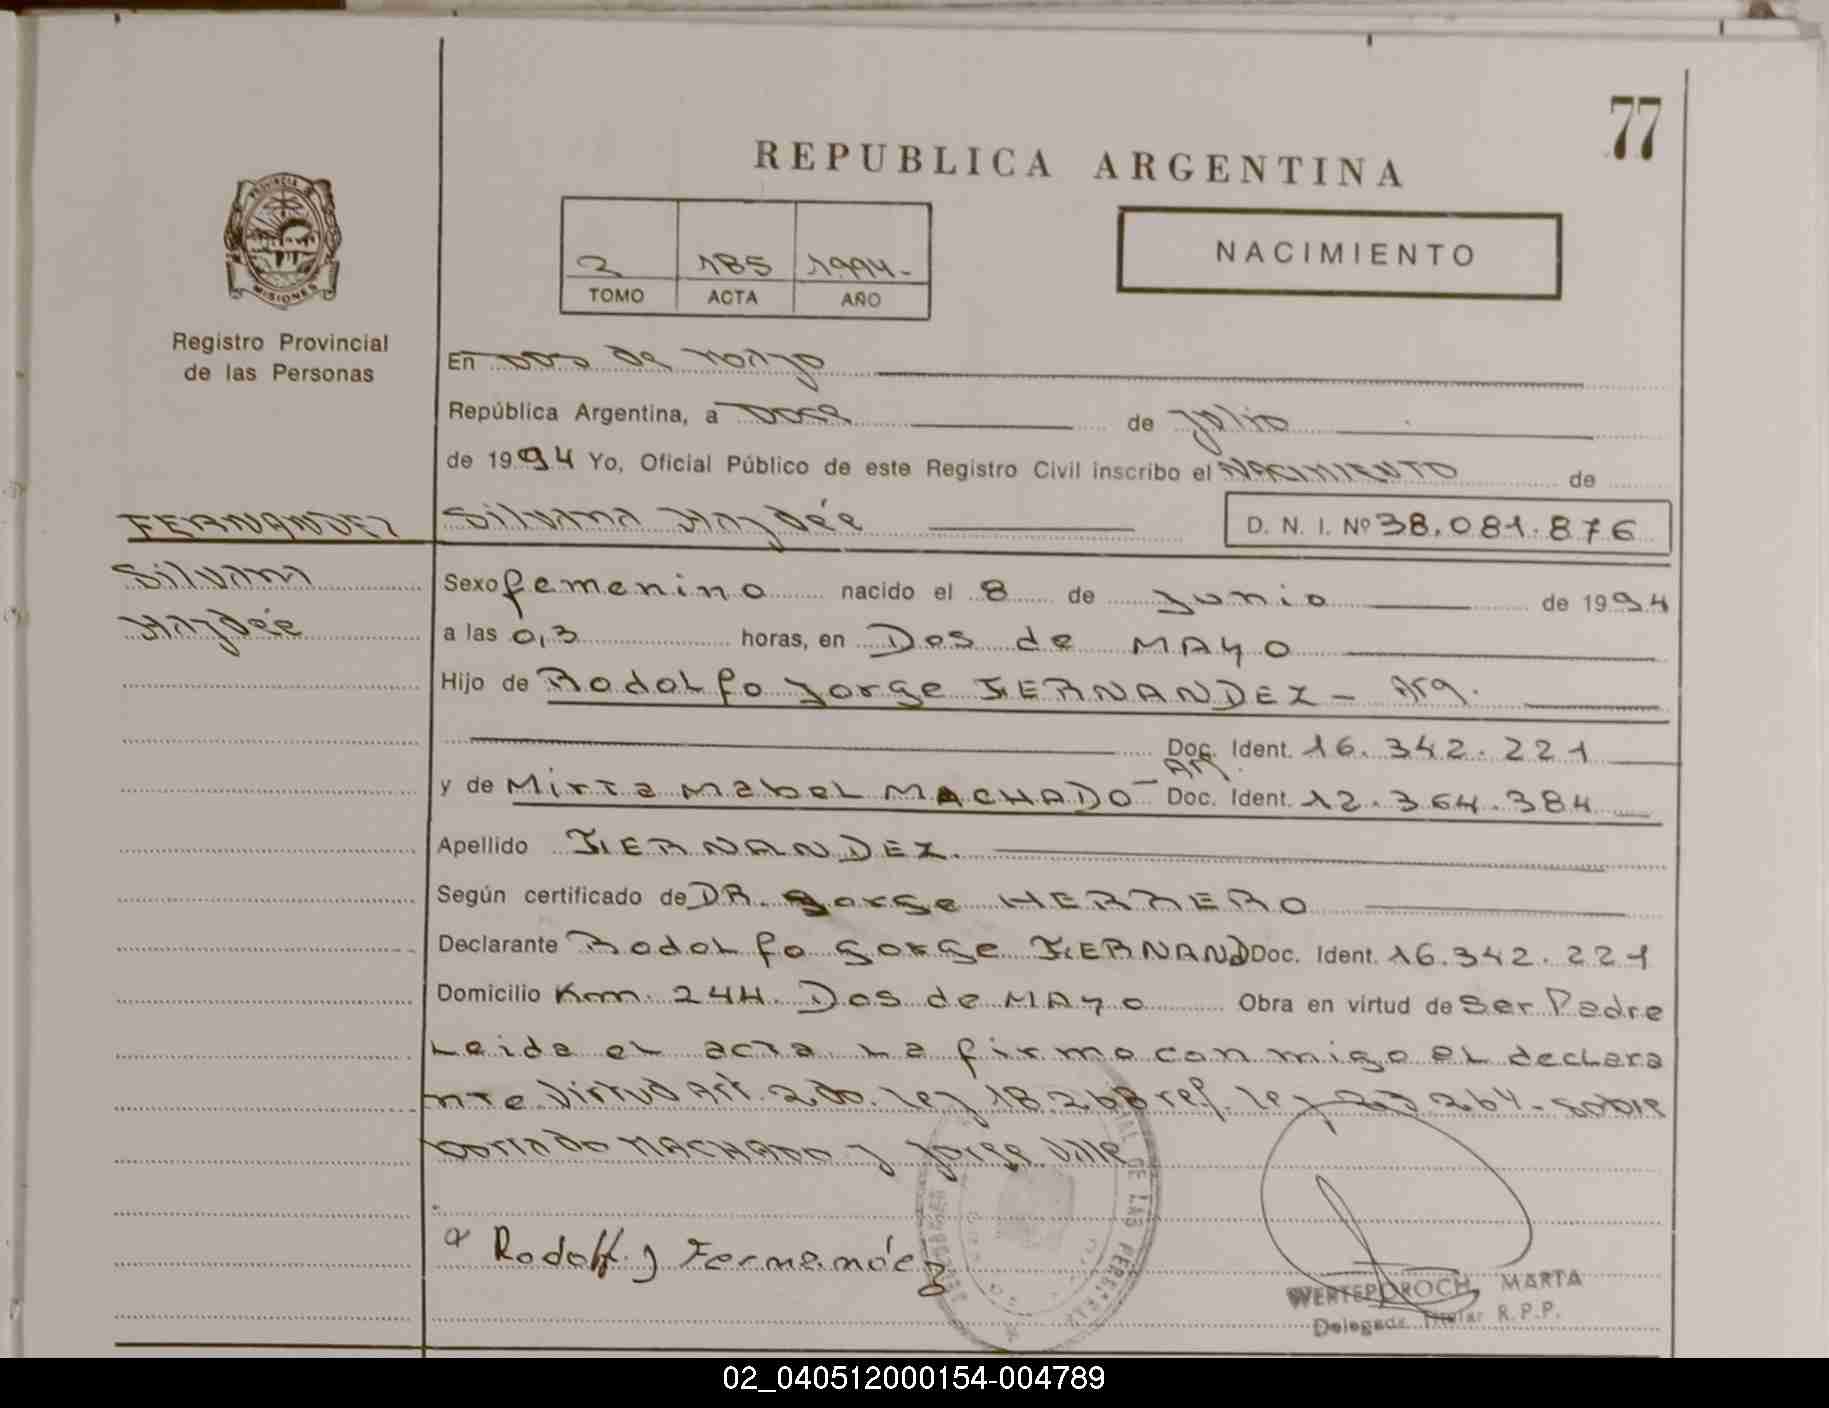 77
REPUBLICA ARGENTINA
PROVINCIA DE
MISIONES
NACIMIENTO
2 185 1994.-
TOMO ACTA AÑO
Registro Provincial
de las Personas
En Dos de Mayo
República Argentina, a Doce de Julio
de 1994 Yo, Oficial Público de este Registro Civil inscribo el NACIMIENTO de
FERNANDEZ Silvana Haydée D. N. I. Nº 38.081.876
Silvana Sexo femenino nacido el 8 de Junio de 1994
Haydée a las 0,3 horas, en Dos de MAyo
Hijo de Rodolfo Jorge FERNANDEZ - Arg.
Doc. Ident. 16.342.221
y de Mirta Mabel MACHADO - Arg. Doc. Ident. 12.364.384
Apellido FERNANDEZ.
Según certificado de DR. Jorge HERRERO
Declarante Rodolfo Jorge FERNAND Doc. Ident. 16.342.221
Domicilio Km. 244. Dos de MAyo Obra en virtud de Ser Padre
Leida el acta la firma conmigo el declara
nte. Virtud Art. 2do. ley 18.248 ref. ley 23.264.- Sobre
borrado MACHADO y Jorge Vale
Rodolf. J Fernandez
DE LAS PERSONAS
WERTEPOROCH, MARTA
Delegada Titular R.P.P.
02_040512000154-004789